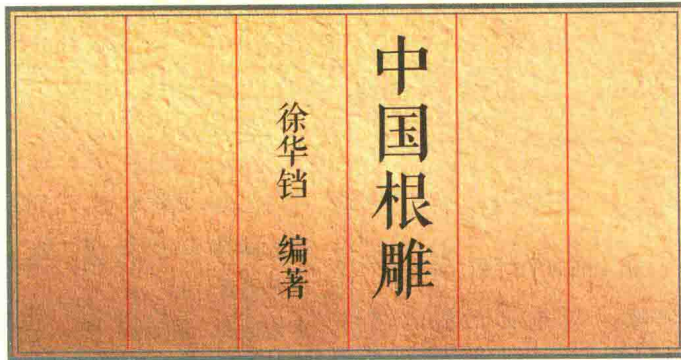 中国根雕
徐华铛 编著